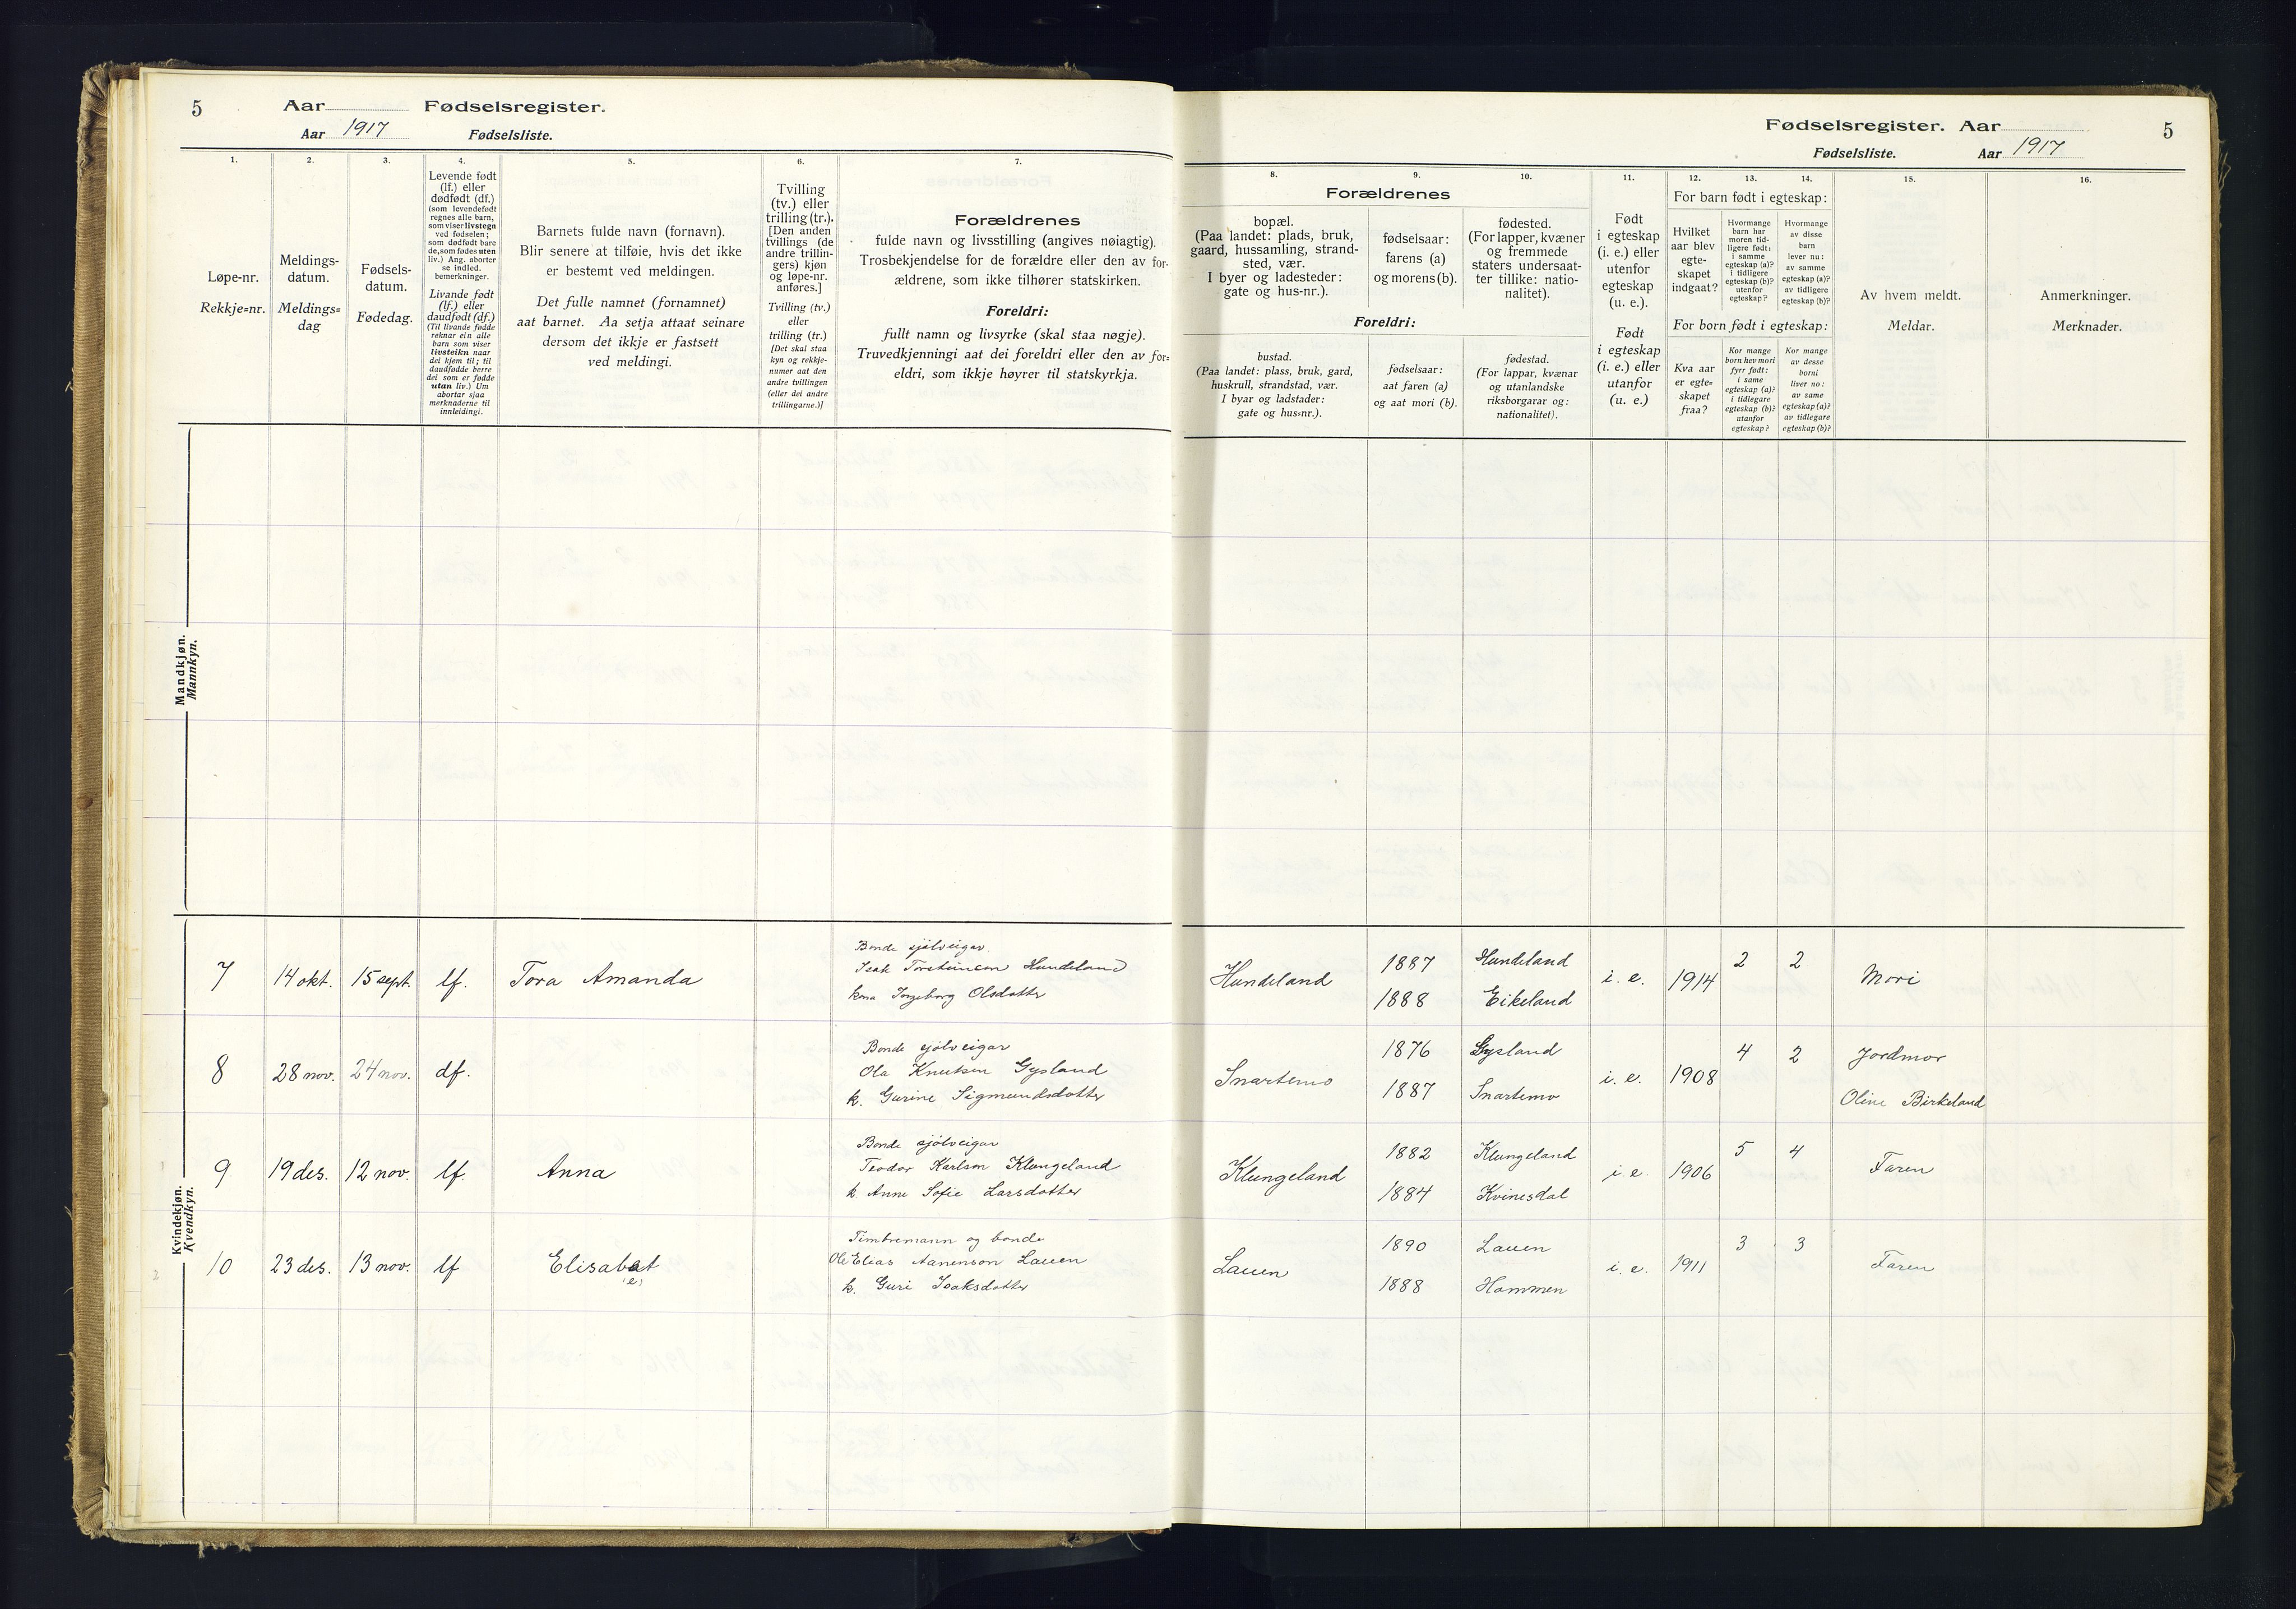 5 Aar Fødselsregister.
Aar 1917 Fødselsliste.
Fødselsregister. Aar 5
Fødselsliste. Aar 1917
1.
Løpe-nr.
Rekkje=nr.
2.
Meldings-
datum.
Meldings=
dag
3.
Fødsels-
datum.
Fødedag.
4.
Levende født
(lf.) eller
dødfødt (df.)
(som levendefødt
regnes alle barn,
som viser livstegn
ved fødselen;
som dødfødt bare
de, som fødes uten
liv.) Ang. aborter
se indled.
bemerkninger.
Livande født
(lf.) eller
daudfødt (df.)
(Til livande fødde
reknar ein alle
barn som viser
livsteikn naar
dei kjem til; til
daudfødde berre
dei som er fødde
utan liv.) Um
abortar sjaa
merknaderne til
innleidingi.
5.
Barnets fulde navn (fornavn).
Blir senere at tilføie, hvis det ikke
er bestemt ved meldingen.
Det fulle namnet (fornamnet)
aat barnet. Aa setja attaat seinare
dersom det ikkje er fastsett
ved meldingi.
6.
Tvilling
(tv.) eller
trilling (tr.).
[Den anden
tvillings (de
andre trillin-
gers) kjøn
og løpe-nr.
anføres.]
Tvilling (tv.)
eller
trilling (tr.)
[Det skal staa
kyn og rekkje-
numer aat den
andre tvillingen
(eller dei andre
trillingarne.)]
7.
Forældrenes
fulde navn og livsstilling (angives nøiagtig).
Trosbekjendelse for de forældre eller den av for-
ældrene, som ikke tilhører statskirken.
Foreldri:
fullt namn og livsyrke (skal staa nøgje).
Truvedkjenningi aat dei foreldri eller den av for=
eldri, som ikkje høyrer til statskyrkja.
Forældrenes
8.
bopæl.
(Paa landet: plads, bruk,
gaard, hussamling, strand-
sted, vær.
I byer og ladesteder:
gate og hus-nr.).
9.
fødselsaar:
farens (a)
og morens (b).
10.
fødested.
(For lapper, kvæner
og fremmede
staters undersaat-
ter tillike: natio-
nalitet).
Foreldri:
bustad.
(Paa landet: plass, bruk, gard,
huskrull, strandstad, vær.
I byar og ladstader:
gate og hus=nr.).
fødselsaar:
aat faren (a)
og aat mori (b).
fødestad.
(For lappar, kvænar
og utanlandske
riksborgarar og:
nationalitet).
11.
Født
i egteskap
(i. e.) eller
utenfor
egteskap
(u. e.).
Født
i egteskap
(i. e.) eller
utanfor
(u. e.)
12. 13. 14.
For barn født i egteskap:
Hvilket
aar blev
egte-
skapet
indgaat?
Hvormange
barn har
moren tid-
ligere født:
i samme
egteskap (a)?
i tidligere
egteskap (b)?
utenfor
egteskap?
Hvormange
av disse
barn
lever nu:
av samme
egteskap (a)?
av tidligere
egteskap (b)?
For born født i egteskap:
Kva aar
er egte=
skapet
fraa?
Kor mange
born hev mori
fyrr født:
i same
egteskap (a)?
i tidlegare
egteskap (b)?
utanfor
egteskap?
Kor mange
av desse
borni
liver no:
av same
egteskap (a)?
av tidlegare
egteskap (b)?
15.
Av hvem meldt.
Meldar.
16.
Anmerkninger.
Merknader.
Mandkjøn.
Mannkyn.
Kvindekjøn.
Kvendkyn.
7 14 okt. 15 sept. lf. Tora Amanda
Bonde sjølveigar.
Isak Torsteinson Hundeland
kona Ingeborg Olsdotter
Hundeland 1887 Hundeland i. e. 1914 2 2 Mori
1888 Eikeland
8 28 nov. 24 nov. df.
Bonde sjølveigar
Ola Knutsen Gysland
k. Gurine Sigmundsdotter
Snartemo 1876 Gysland i. e. 1908 4 2 Jordmor
1887 Snartemo Oline Birkeland
9 19 des. 12 nov. lf. Anna
Bonde sjølveigar
Teodor Karlson Klungeland
k Anne Sofie Larsdotter
Klungeland 1882 Klungeland i. e. 1906 5 4 Faren
1884 Kvinesdal
10 23 des. 13 nov. lf Elisabet
(e)
Timbremann og bonde
Ole Elias Aanenson Lauen
k. Guri Isaksdotter
Lauen 1890 Lauen i. e. 1911 3 3 Faren
1888 Hommen